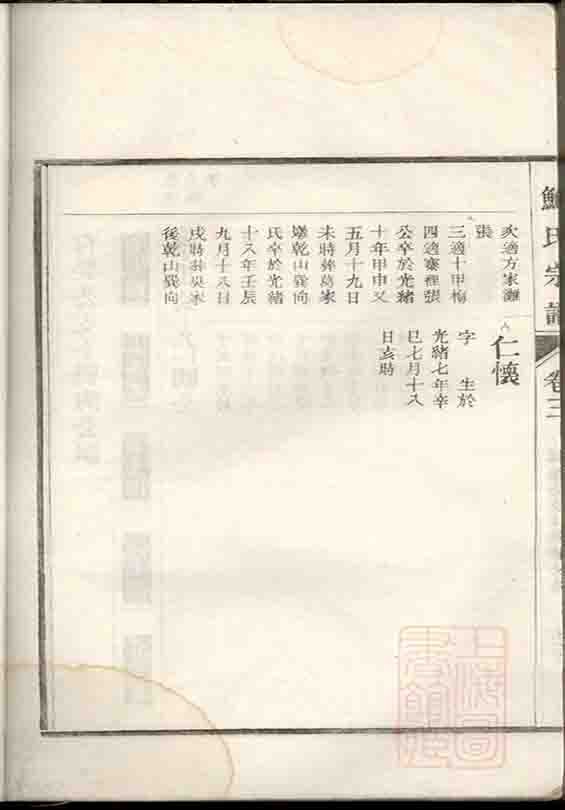 鮑氏宗譜
卷三
次適方家灘
張
三適十甲梅
四適寨裡張
公卒於光緒
十年甲申又
五月十九日
未時葬葛家
墩乾山巽向
氏卒於光緒
十八年壬辰
九月十八日
戌時葬吳家
後乾山巽向
仁懷
字 生於
光緒七年辛
巳七月十八
日亥時
上海圖書館藏